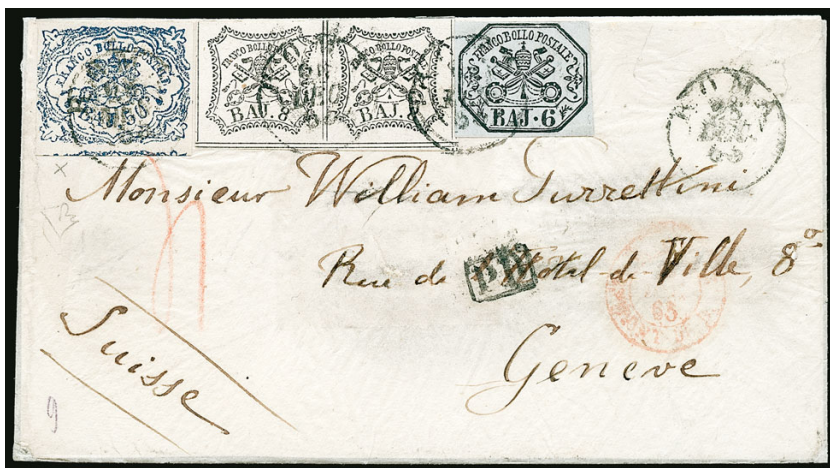 FRANCO BOLLO POSTALE
BAJ. 50
FRANCO BOLLO POSTALE
BAJ. 8
FRANCO BOLLO POSTALE
BAJ. 8
FRANCO BOLLO POSTALE
BAJ. 6
ROMA
65
Monsieur William Turrettini
Rue de l'Hotel de Ville, 8
PD
65
Suisse
Geneve
9